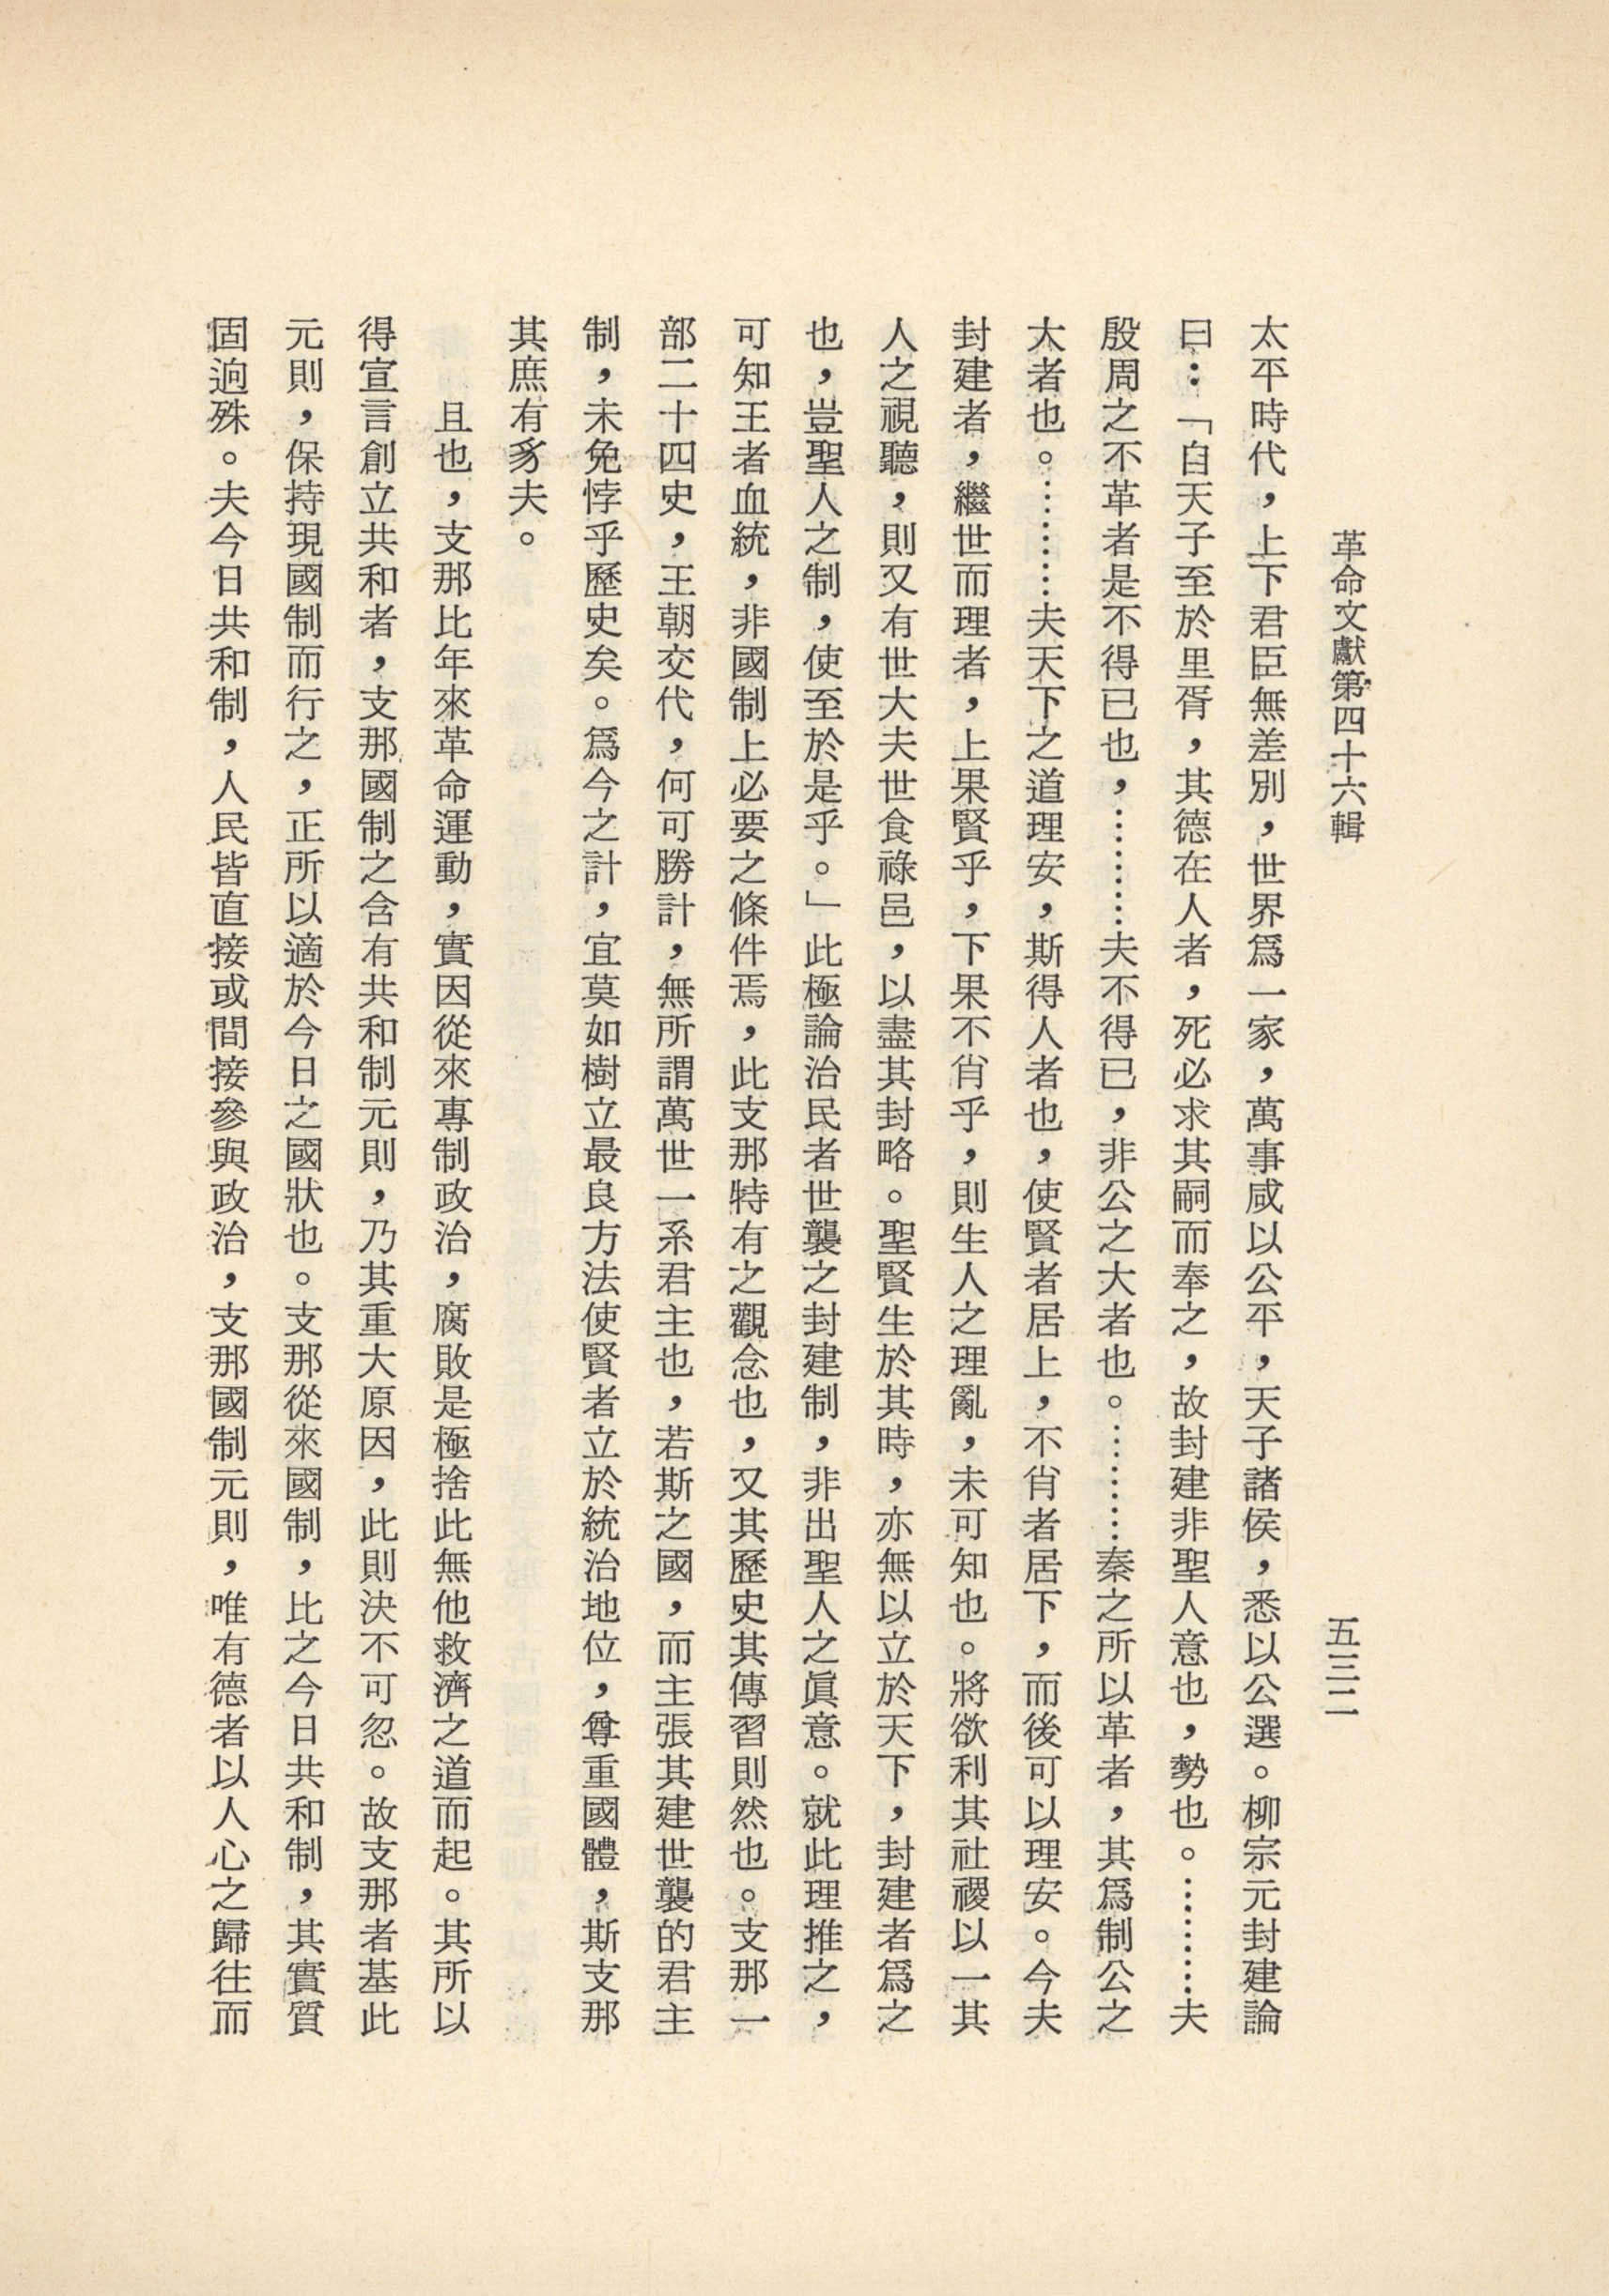 革命文獻第四十六輯
五三二
太平時代，上下君臣無差別，世界爲一家，萬事咸以公平，天子諸侯，悉以公選。柳宗元封建論
曰：「自天子至於里胥，其德在人者，死必求其嗣而奉之，故封建非聖人意也，勢也。…………夫
殷周之不革者是不得已也，…………夫不得已，非公之大者也。…………秦之所以革者，其爲制公之
大者也。…………夫天下之道理安，斯得人者也，使賢者居上，不肖者居下，而後可以理安。今夫
封建者，繼世而理者，上果賢乎，下果不肖乎，則生人之理亂，未可知也。將欲利其社稷以一其
人之視聽，則又有世大夫世食祿邑，以盡其封略。聖賢生於其時，亦無以立於天下，封建者爲之
也，豈聖人之制，使至於是乎。」此極論治民者世襲之封建制，非出聖人之眞意。就此理推之，
可知王者血統，非國制上必要之條件焉，此支那特有之觀念也，又其歷史其傳習則然也。支那一
部二十四史，王朝交代，何可勝計，無所謂萬世一系君主也，若斯之國，而主張其建世襲的君主
制，未免悖乎歷史矣。爲今之計，宜莫如樹立最良方法使賢者立於統治地位，尊重國體，斯支那
其庶有豸夫。
且也，支那比年來革命運動，實因從來專制政治，腐敗是極捨此無他救濟之道而起。其所以
得宣言創立共和者，支那國制之含有共和制元則，乃其重大原因，此則決不可忽。故支那者基此
元則，保持現國制而行之，正所以適於今日之國狀也。支那從來國制，比之今日共和制，其實質
固逈殊。夫今日共和制，人民皆直接或間接參與政治，支那國制元則，唯有德者以人心之歸往而